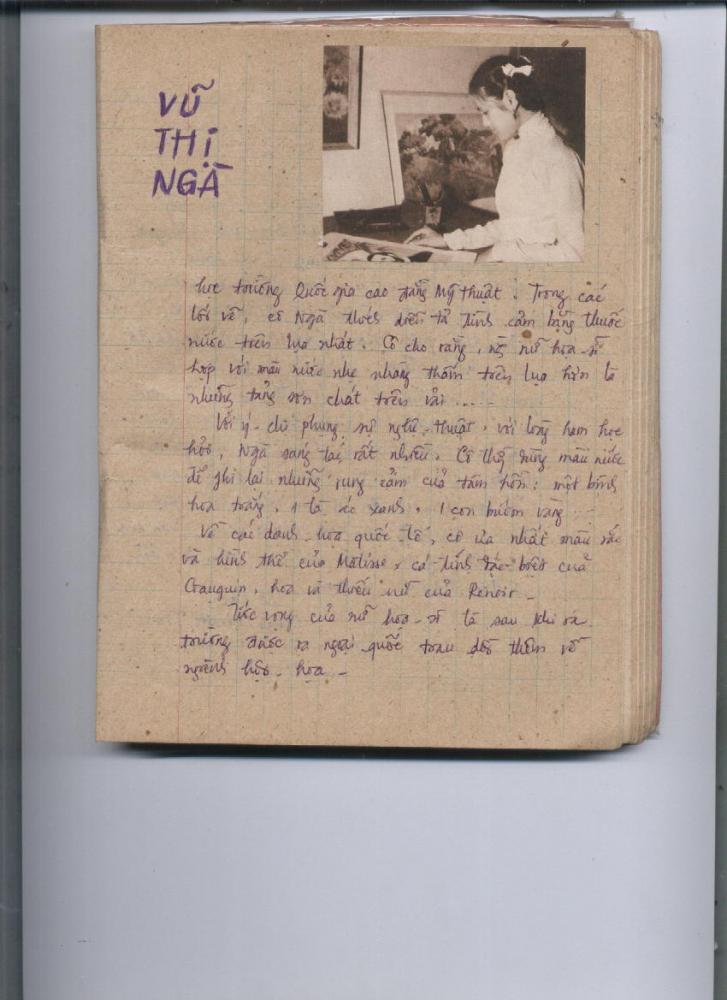 VŨ
THỊ
NGÀ
học trường Quốc gia cao đẳng Mỹ thuật. Trong các
lối vẽ, cô Ngà thích diễn tả tình cảm bằng thuốc
nước trên lụa nhất. Cô cho rằng, nữ họa-sĩ
hợp với màu nước nhẹ nhàng thấm trên lụa hơn là
những tảng sơn chất trên vải ....
Với ý-chí phụng sự nghệ-thuật, với lòng ham học
hỏi, Ngà sáng tác rất nhiều. Cô thg dùng màu nước
để ghi lại những rung cảm của tâm hồn: một bông
hoa trắng, 1 lá xanh, 1 con bướm vàng ...
Về các danh-họa quốc tế, cô ưa nhất màu sắc
và hình thể của Matisse, cá tính đặc-biệt của
Gauguin, hoa và thiếu nữ của Renoir -
Ước vọng của nữ họa-sĩ là sau khi ra
trường được ra ngoại quốc trau dồi thêm về
ngành hội-họa -